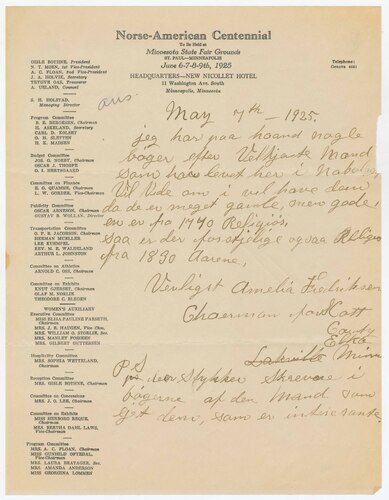 Norse-American Centennial
To Be Held at
Minnesota State Fair Grounds
ST. PAUL—MINNEAPOLIS
June 6-7-8-9th, 1925
HEADQUARTERS—NEW NICOLLET HOTEL
11 Washington Ave. South
Minneapolis, Minnesota
Telephone:
GISLE BOTHNE, President
N. T. MOEN, 1st Vice-President
A. C. FLOAN, 2nd Vice-President
J. A. HOLVIK, Secretary
TRYGVE OAS, Treasurer
A. UELAND, Counsel
S. H. HOLSTAD,
Managing Director
ans.
Program Committee
B. E. BERGESEN, Chairman
H. ASKELAND, Secretary
CARL D. KOLSET
O. H. SLETTEN
H. K. MADSEN
Budget Committee
JOS. G. NORBY, Chairman
OSCAR J. THORPE
O. I. HERTSGAARD
Committee on Finance
E. G. QUAMME, Chairman
L. W. GORDER, Vice-Chairman
Publicity Committee
OSCAR ARNESON, Chairman
GUSTAV B. WOLLAN, Director
Transportation Committee
O. P. B. JACOBSON, Chairman
HERMAN MUELLER
LEE KUEMPEL
REV. M. E. WALDELAND
ARTHUR L. JOHNSTON
Committee on Athletics
ARNOLD C. OSS, Chairman
Committee on Exhibits
KNUT GJERSET, Chairman
OLAF M. NORLIE
THEODORE C. BLEGEN
WOMEN'S AUXILIARY
Executive Committee
MISS ELISA PAULINE FARSETH, Chairman
MRS. J. R. HAUGEN, Vice Chm.
MRS. WILLIAM O. STORLIE, Sec.
MRS. MANLEY FOSSEEN
MRS. GILBERT GUTTERSEN
Hospitality Committee
MRS. SOPHIA WETTELAND, Chairman
Reception Committee
MRS. GISLE BOTHNE, Chairman
Committee on Concessions
MRS. J. O. LEE, Chairman
Committee on Exhibits
MISS HERBORG REQUE, Chairman
MRS. BERTHA DAHL LAWS, Vice-Chairman
Program Committee
MRS. A. C. FLOAN, Chairman
MISS GUNHILD OFTEDAL, Vice-Chairman
MRS. LAURA BRATAGER, Sec.
MRS. AMANDA ANDERSON
MISS GEORGINA LOMMEN
May 7th — 1925.
jeg har paa haand nogle
bøger efter Mand
som have levet her i
Vil lade dem i skal have dem
da de er meget gamle, men gode
en er fra 1740 Religiøs
saa er der forskjelige ogsaa Religiøs
fra 1830 Aarene.
Venligst Amelia Fredriksen
Chaerman for
County
Elko
Lakeville Minn
P S
der Stykker Skrevne i
bøgerne af den Mand som
eget dem, som er interesante.